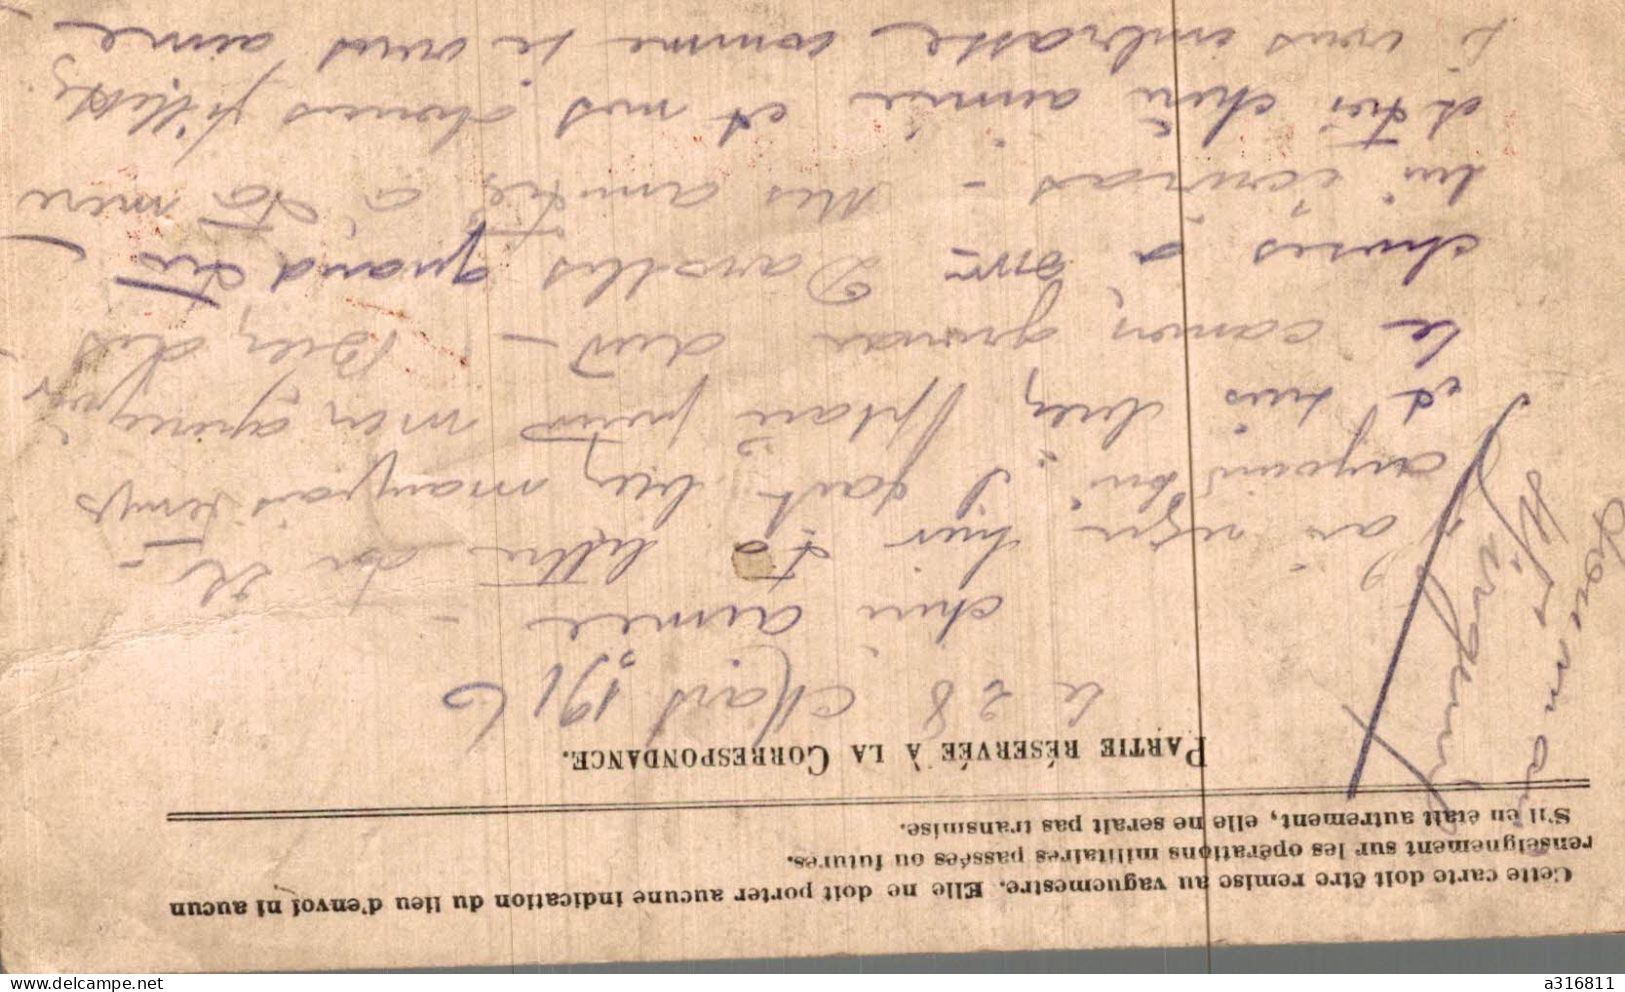 Cette carte doit être remise au vaguemestre. Elle ne doit porter aucune indication du lieu d'envoi ni aucun
renseignement sur les opérations militaires passées ou futures.
S'il en était autrement, elle ne serait pas transmise.
PARTIE RÉSERVÉE À LA CORRESPONDANCE.
le 28 Mars 1916
chère aimée -
J'ai reçu hier ta lettre du
aujourd'hui. Il fait bien mauvais temps
et suis bien
le canon gronde dur - Bien des
choses à Mme quand tu
lui écriras - Mes amitiés à ta mère
et toi chère aimée et nos chères fillettes
Je vous embrasse comme je vous aime
delcampe.net
a316811